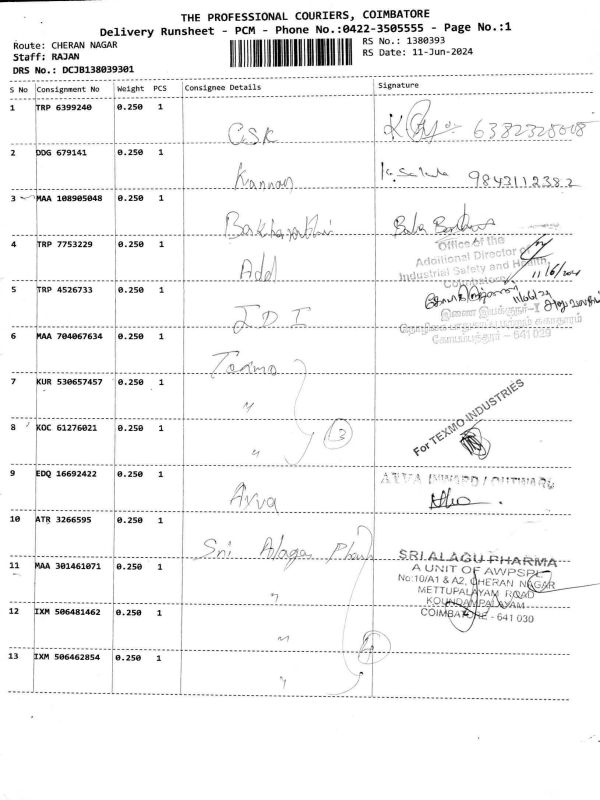 THE PROFESSIONAL COURIERS, COIMBATORE
Delivery Runsheet - PCM - Phone No.:0422-3505555 - Page No.:1
Route: CHERAN NAGAR
RS No.: 1380393
Staff: RAJAN
RS Date: 11-Jun-2024
DRS No.: DCJB138039301
S No Consignment No Weight PCS Consignee Details Signature
1 TRP 6399240 0.250 1
GSK 6382328008
2 DDG 679141 0.250 1
Kannan 9843112382
3 MAA 108905048 0.250 1
Bala
4 TRP 7753229 0.250 1
Office of the
Additional Director of
Industrial Safety and Health
Coimbatore
Addl 11/6/2024
5 TRP 4526733 0.250 1
11/06/24
இணை இயக்குநர்-I
கோயம்புத்தூர் - 641 029
JDI
6 MAA 704067634 0.250 1
Texmo
7 KUR 530657457 0.250 1
"
For TEXMO INDUSTRIES
8 KOC 61276021 0.250 1
" 3
9 EDQ 16692422 0.250 1
AYVA INWARD / OUTWARD
Ayva
10 ATR 3266595 0.250 1
Sri Alagu Pharma
SRI ALAGU PHARMA
A UNIT OF AWPSPL
No:10/A1 & A2, CHERAN NAGAR
METTUPALAYAM ROAD
KOUNDAMPALAYAM
COIMBATORE - 641 030
11 MAA 301461071 0.250 1
"
12 IXM 506481462 0.250 1
" 4
13 IXM 506462854 0.250 1
"